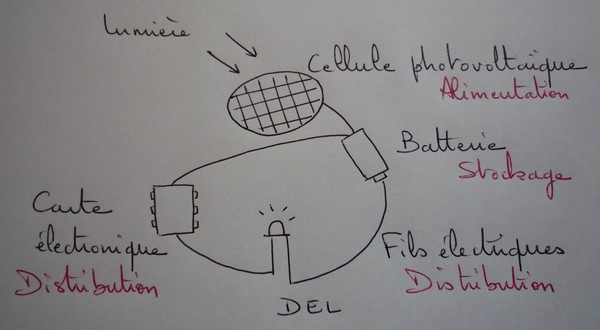 Lumière
Cellule photovoltaïque
Alimentation
Batterie
Stockage
Carte
électronique
Distribution
Fils électriques
Distribution
DEL